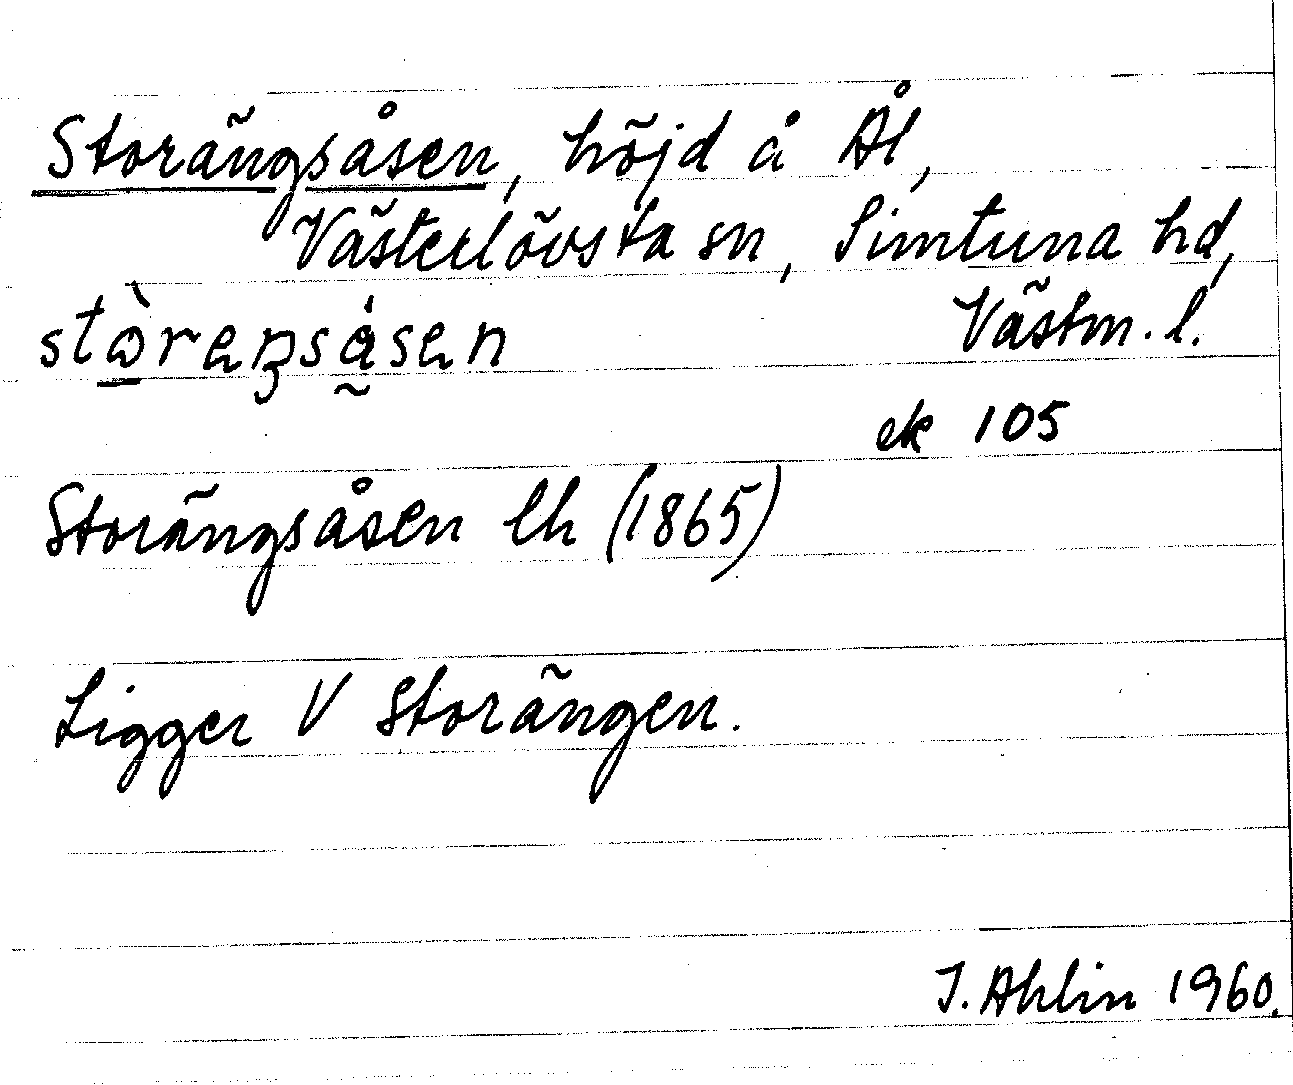 Storängsåsen, höjd å Ål,
Västerlövsta sn, Simtuna hd,
Västm. l.
ek 105
Storängsåsen lh (1865)
Ligger V Storängen.
J. Ahlin 1960.